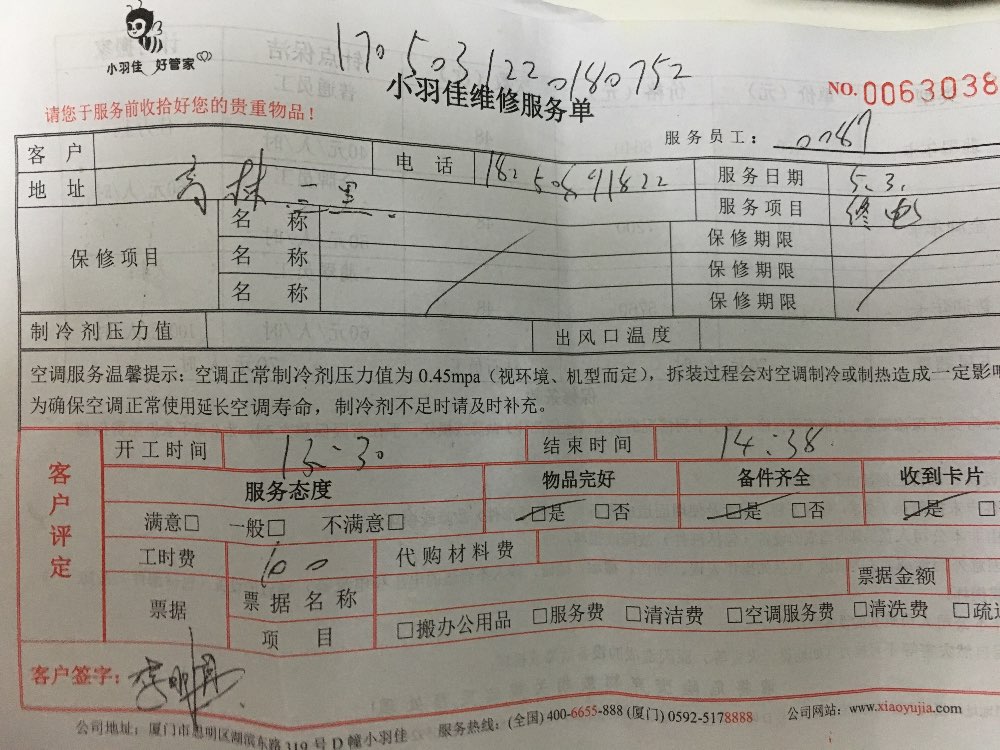 小羽佳 好管家
1705031220180752
小羽佳维修服务单
NO. 0063038
请您于服务前收拾好您的贵重物品！
服务员工： 0087
客 户 电 话 18250891822 服务日期 5.3.
地 址 高林二里 服务项目 修电
保修项目 名 称 保修期限
名 称 保修期限
名 称 保修期限
制冷剂压力值 出风口温度
空调服务温馨提示：空调正常制冷剂压力值为 0.45mpa（视环境、机型而定），拆装过程会对空调制冷或制热造成一定影
为确保空调正常使用延长空调寿命，制冷剂不足时请及时补充。
客户评定
开工时间 13:30 结束时间 14:38
服务态度 物品完好 备件齐全 收到卡片
满意□ 一般□ 不满意□ □是 □否 □是 □否 □是 □
工时费 100 代购材料费
票据 票据名称 票据金额
项 目 □搬办公用品 □服务费 □清洁费 □空调服务费 □清洗费 □疏
客户签字： 李明
公司地址：厦门市思明区湖滨东路 319 号 D 幢小羽佳 服务热线：(全国) 400-6655-888 (厦门) 0592-5178888 公司网站：www.xiaoyujia.com